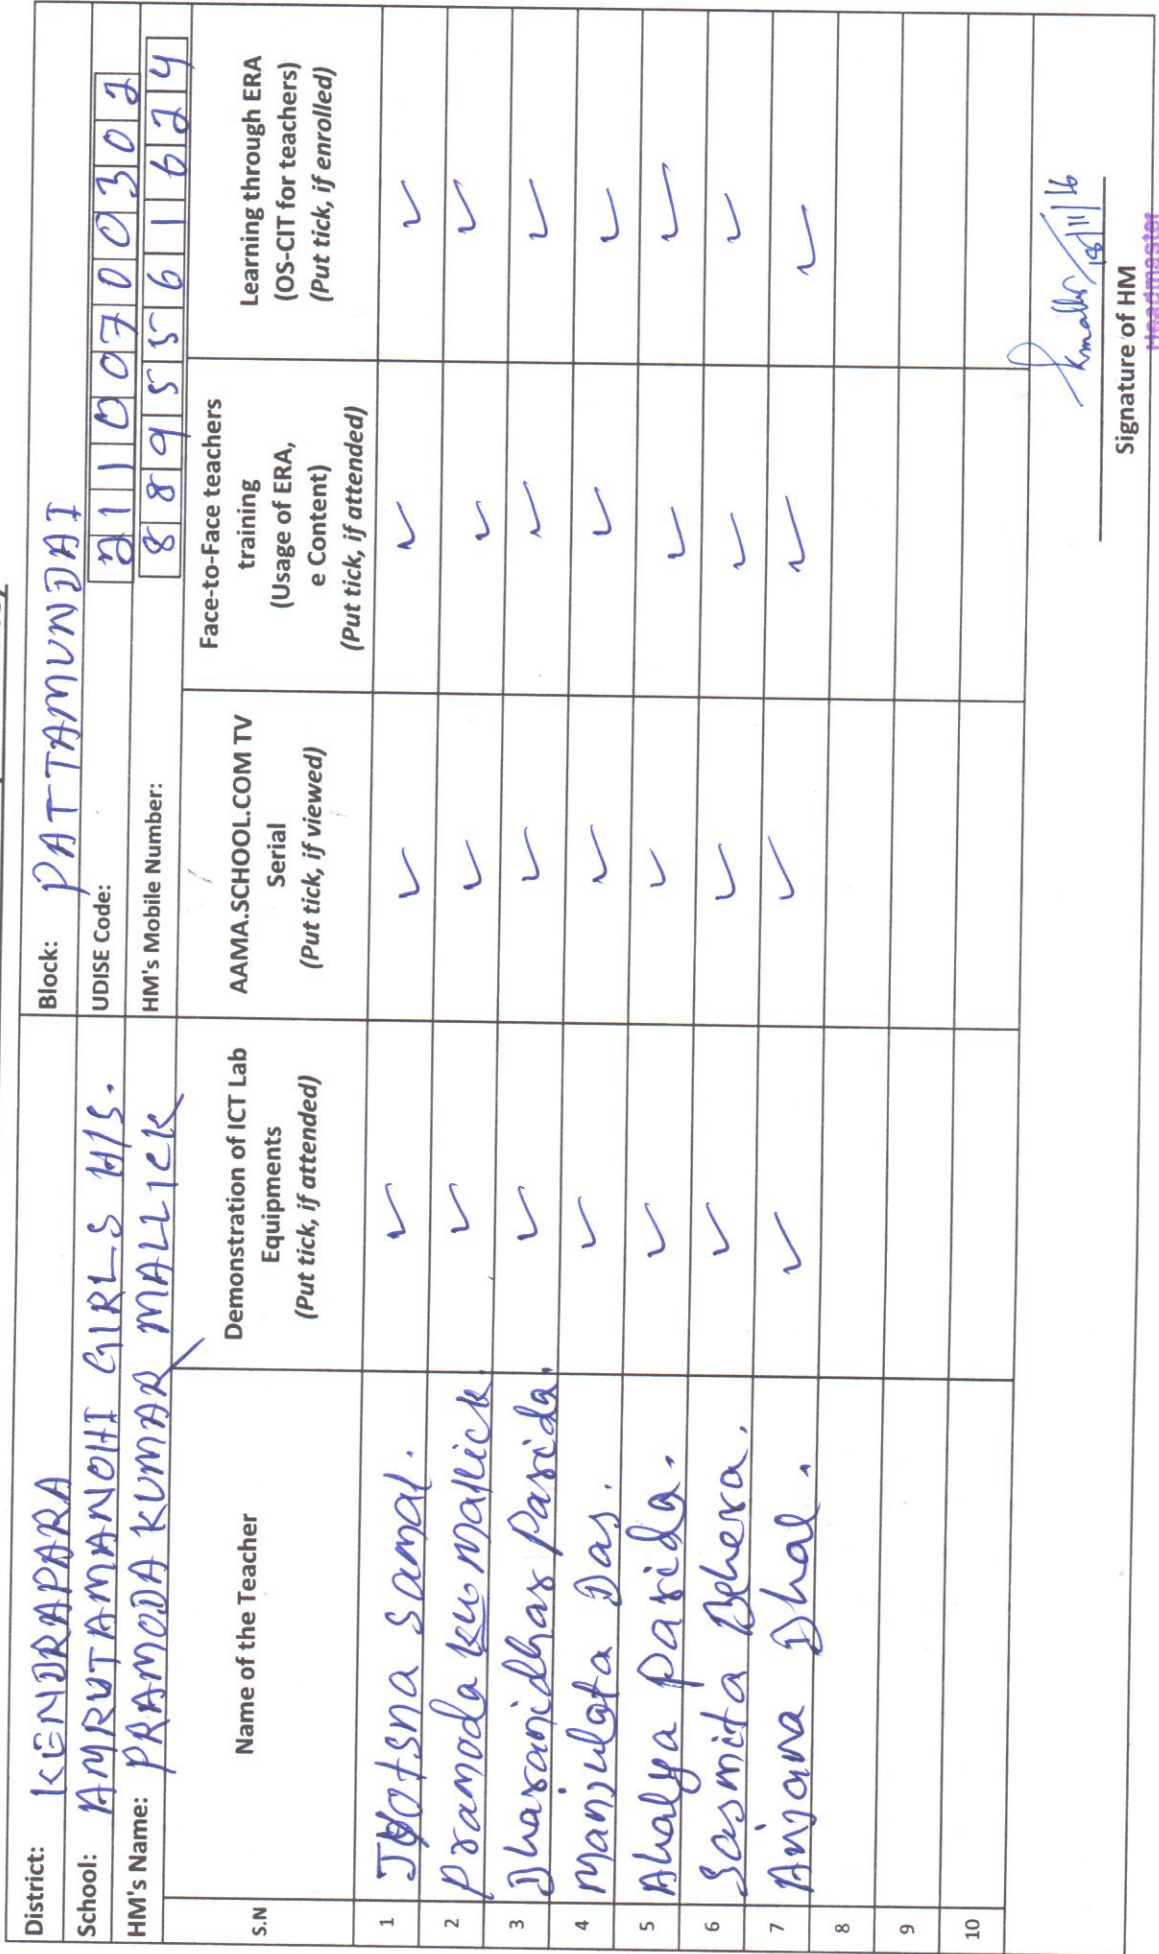 District: KENDRAPARA Block: PATTAMUNDAI
School: AMRUTAMANOHI GIRLS H/S. UDISE Code: 21100700302
HM's Name: PRAMODA KUMAR MALLICK HM's Mobile Number: 8895561624
S.N Name of the Teacher Demonstration of ICT Lab Equipments (Put tick, if attended) AAMA.SCHOOL.COM TV Serial (Put tick, if viewed) Face-to-Face teachers training (Usage of ERA, e Content) (Put tick, if attended) Learning through ERA (OS-CIT for teachers) (Put tick, if enrolled)
1 Jyotsna Samal. ✓ ✓ ✓ ✓
2 Pramoda Ku Mallick ✓ ✓ ✓ ✓
3 Dharanidhar Parida. ✓ ✓ ✓ ✓
4 Manjulata Das. ✓ ✓ ✓ ✓
5 Ahalya Parida. ✓ ✓ ✓ ✓
6 Sasmita Behera. ✓ ✓ ✓ ✓
7 Anjana Dhal. ✓ ✓ ✓ ✓
8
9
10
18/11/16
Signature of HM
Headmaster